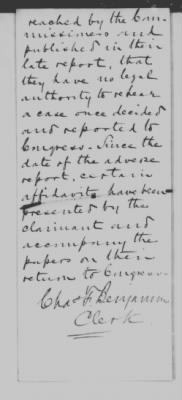 reached by the Com-
missioners and
published in their
late report, that
they have no legal
authority to rehear
a case once decided
and reported to
Congress. Since the
date of the adverse
report, certain
affidavits have been
presented by the
claimant and
accompany the
papers on their
return to Congress.
Chas F. Benjamin
Clerk